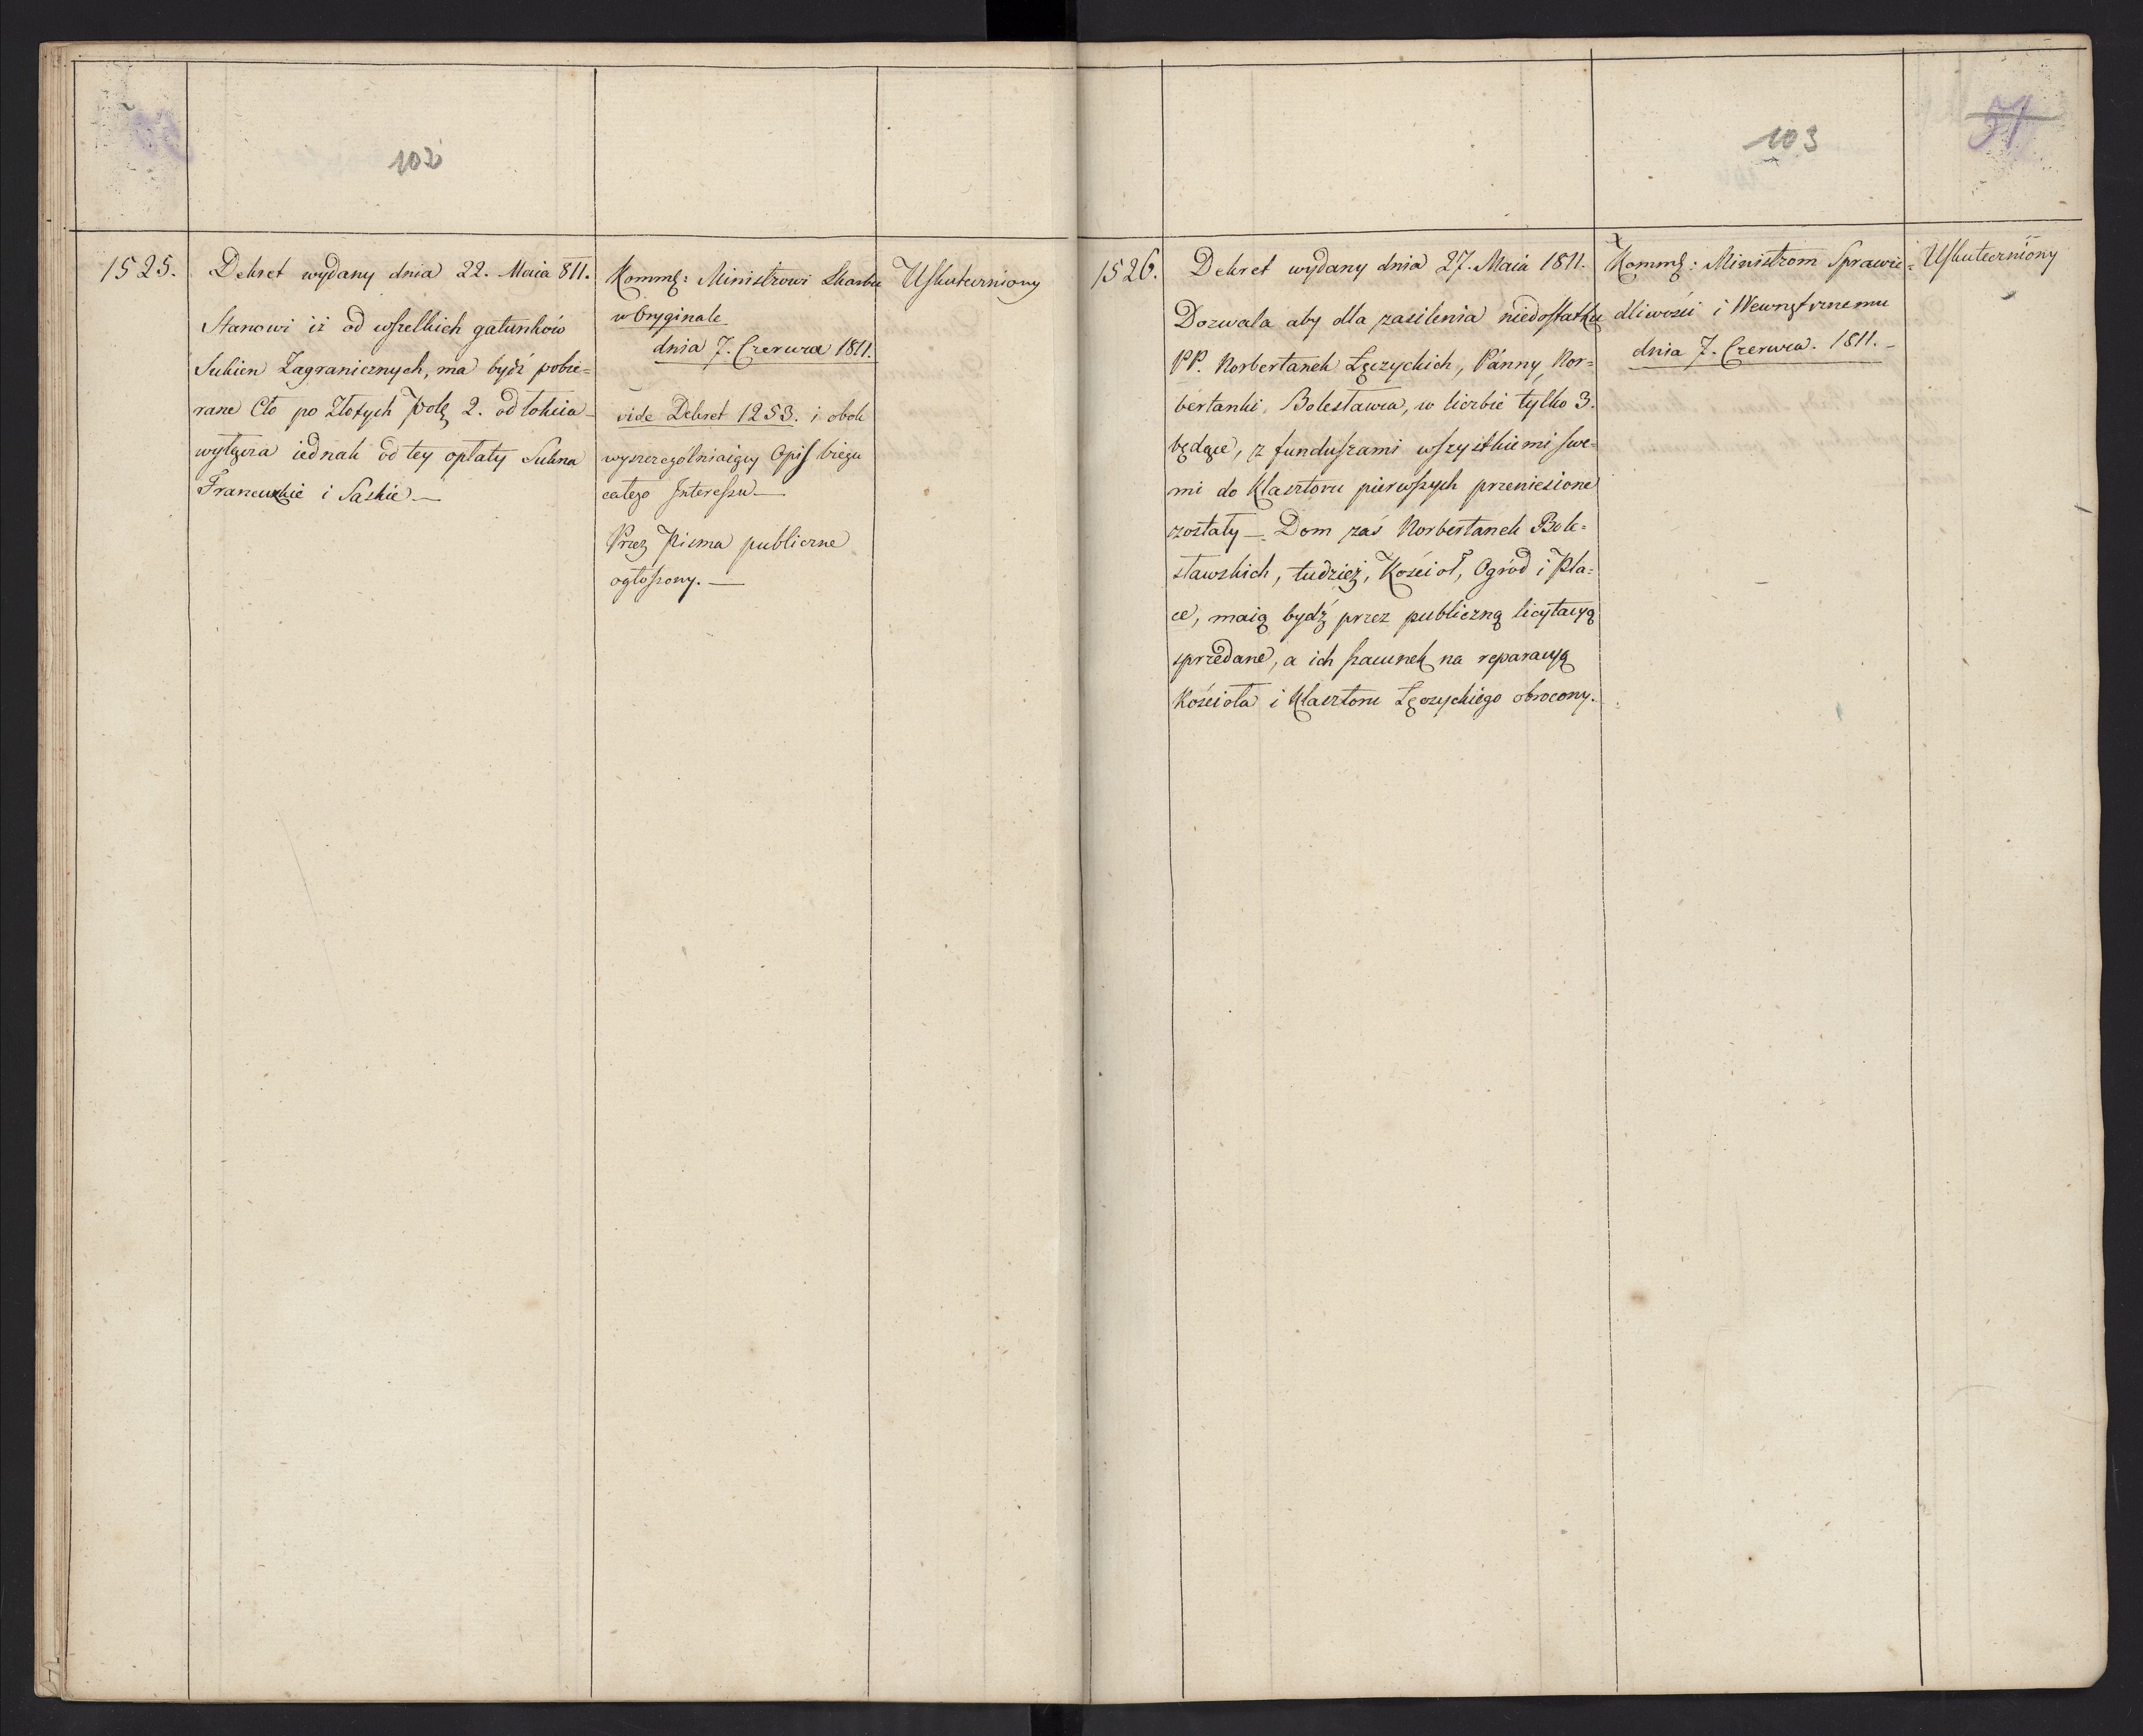 102
1525.
Dekret wydany dnia 22. Maia 811.
Stanowi iż od wszelkich gatunków
Sukien Zagranicznych, ma bydź pobie=
rane Cło po Złotych Pols 2. od łokcia
wyłącza iednak od tey opłaty Sukna
Francuzkie i Saskie.—
Kommd: Ministrowi Skarbu
w Oryginale
dnia 7. Czerwca 1811.
vide Dekret 1253. i obok
wyszczególniaiący Opis biegu
całego Interessu—
Przez Pisma publiczne
ogłoszony.—
Uskuteczniony
103
51
1526.
Dekret wydany dnia 27. Maia 1811.
Dozwala aby dla zasilenia niedostatku
PP. Norbertanek Łęczyckich, Panny Nor=
bertanki, Bolesławca, w liczbie tylko 3.
będące, z funduszami wszystkiemi swe=
mi do Klasztoru pierwszych przeniesione
zostały —. Dom zaś Norbertanek Bole=
sławskich, tudzież, Kościoł, Ogród i Pla=
ce, maią bydź przez publiczną licytacyą
sprzedane, a ich szacunek na reparacyą
Kościoła i Klasztoru Łęczyckiego obrocony.
Kommd: Ministrom Sprawie=
dliwości i Wewnętrznemu
dnia 7. Czerwca. 1811.—
Uskuteczniony